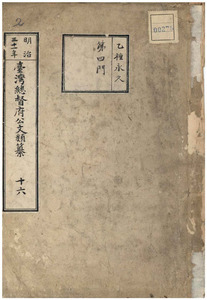 乙種永久
第四門
明治
三十一年
臺灣總督府公文類纂
十六
2